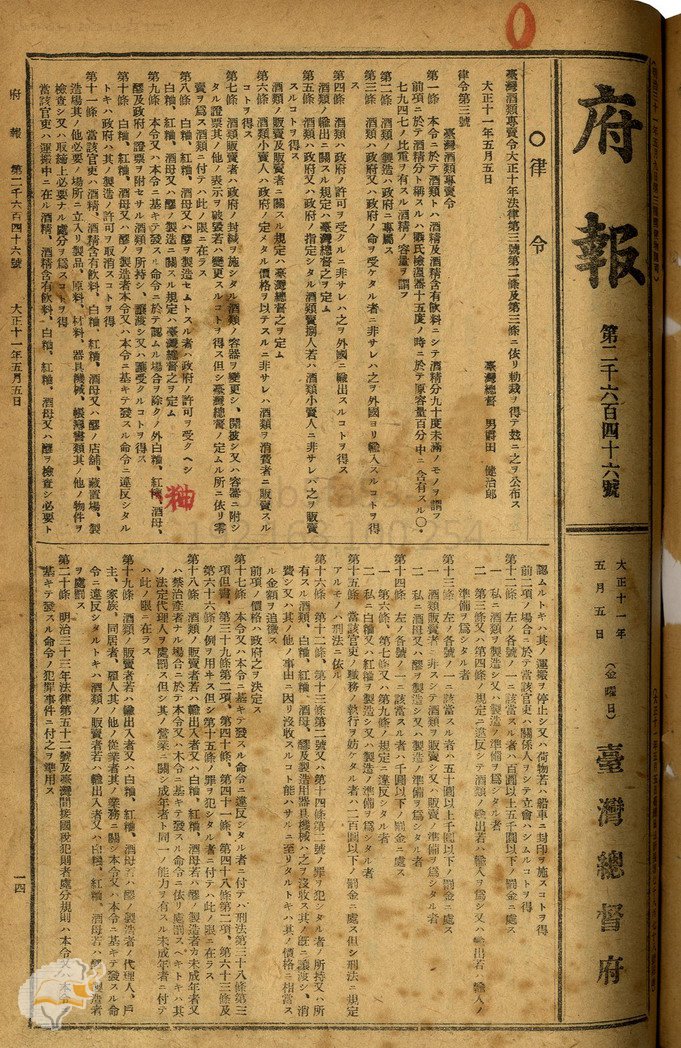 府報
第二千六百四十六號
大正十一年
五月五日
(金曜日)
臺灣總督府
〇律令
臺灣酒類專賣令大正十年法律第三號第二條及第三條ニ依リ勅裁ヲ得テ玆ニ之ヲ公布ス
大正十一年五月五日
臺灣總督 男爵田 健治郎
律令第三號
臺灣酒類專賣令
第一條 本令ニ於テ酒類トハ酒精及酒精含有飮料ニシテ酒精分九十度未滿ノモノヲ謂フ
前項ニ於テ酒精分ト稱スルハ攝氏檢溫器十五度ノ時ニ於テ原容量百分中ニ含有スル〇・
七九四七ノ比重ヲ有スル酒精ノ容量ヲ謂フ
第二條 酒類ノ製造ハ政府ニ專屬ス
第三條 酒類ハ政府又ハ政府ノ命ヲ受ケタル者ニ非サレハ之ヲ外國ヨリ輸入スルコトヲ得
ス
第四條 酒類ハ政府ノ許可ヲ受クルニ非サレハ之ヲ外國ニ輸出スルコトヲ得ス
酒類ノ輸出ニ關スル規定ハ臺灣總督之ヲ定ム
第五條 酒類ハ政府又ハ政府ノ指定シタル酒類賣捌人若ハ酒類小賣人ニ非サレハ之ヲ販賣
スルコトヲ得ス
酒類ノ販賣及販賣者ニ關スル規定ハ臺灣總督之ヲ定ム
第六條 酒類小賣人ハ政府ノ定メタル價格ヲ以テスルニ非サレハ酒類ヲ消費者ニ販賣スル
コトヲ得ス
第七條 酒類販賣者ハ政府ノ封緘ヲ施シタル酒類ノ容器ヲ變更シ、開披シ又ハ容器ニ附シ
タル證票其ノ他ノ表示ヲ破毀若ハ變更スルコトヲ得ス但シ臺灣總督ノ定ムル所ニ依リ零
賣ヲ爲ス酒類ニ付テハ此ノ限ニ在ラス
第八條 白粬、紅粬、酒母又ハ醪ヲ製造セムトスル者ハ政府ノ許可ヲ受クヘシ
白粬、紅粬、酒母又ハ醪ノ製造ニ關スル規定ハ臺灣總督之ヲ定ム
第九條 本令又ハ本令ニ基キテ發スル命令ニ於テ認ムル場合ヲ除クノ外白粬、紅粬、酒母、
醪及政府ノ證票ヲ附セサル酒類ヲ所持シ、讓渡シ又ハ讓受クルコトヲ得ス
第十條 白粬、紅粬、酒母又ハ醪ノ製造者本令又ハ本令ニ基キテ發スル命令ニ違反シタル
トキハ政府ハ其ノ製造ノ許可ヲ取消スコトヲ得
第十一條 當該官吏ハ酒精、酒精含有飮料、白粬、紅粬、酒母又ハ醪ノ店舖、藏置場、製
造場其ノ他必要ノ場所ニ立入リ製品、原料、材料、器具機械、帳簿書類其ノ他ノ物件ヲ
檢査シ又ハ取締上必要ナル處分ヲ爲スコトヲ得
當該官吏ハ運搬中ニ在ル酒精、酒精含有飮料、白粬、紅粬、酒母又ハ醪ヲ檢査シ必要ト
粬
認ムルトキハ其ノ運搬ヲ停止シ又ハ荷物若ハ船車ニ封印ヲ施スコトヲ得
前二項ノ場合ニ於テ當該官吏ハ關係人ヲシテ立會ハシムルコトヲ得
第十二條 左ノ各號ノ一ニ該當スル者ハ百圓以上五千圓以下ノ罰金ニ處ス
一 私ニ酒類ヲ製造シ又ハ製造ノ準備ヲ爲シタル者
二 第三條又ハ第四條ノ規定ニ違反シテ酒類ノ輸出若ハ輸入ヲ爲シ又ハ輸出若ハ輸入ノ
準備ヲ爲シタル者
第十三條 左ノ各號ノ一ニ該當スル者ハ五十圓以上千圓以下ノ罰金ニ處ス
一 酒類販賣者ニ非スシテ酒類ヲ販賣シ又ハ販賣ノ準備ヲ爲シタル者
二 私ニ酒母又ハ醪ヲ製造シ又ハ製造ノ準備ヲ爲シタル者
第十四條 左ノ各號ノ一ニ該當スル者ハ千圓以下ノ罰金ニ處ス
一 第六條、第七條又ハ第九條ノ規定ニ違反シタル者
二 私ニ白粬又ハ紅粬ヲ製造シ又ハ製造ノ準備ヲ爲シタル者
第十五條 當該官吏ノ職務ノ執行ヲ妨ケタル者ハ二百圓以下ノ罰金ニ處ス但シ刑法ニ規定
アルモノハ刑法ニ依ル
第十六條 第十二條、第十三條第二號又ハ第十四條第二號ノ罪ヲ犯シタル者ノ所持又ハ所
有スル酒類、白粬、紅粬、酒母、醪及製造用器具機械ハ之ヲ沒收ス其ノ旣ニ讓渡シ、消
費シ又ハ其ノ他ノ事由ニ因リ沒收スルコト能ハサルニ至リタルトキハ其ノ價格ニ相當ス
ル金額ヲ追徵ス
前項ノ價格ハ政府之ヲ決定ス
第十七條 本令又ハ本令ニ基キテ發スル命令ニ違反シタル者ニ付テハ刑法第三十八條第三
項但書、第三十九條第二項、第四十條、第四十一條、第四十八條第二項、第六十三條及
第六十六條ノ例ヲ用キス但シ第十五條ノ罪ヲ犯シタル者ニ付テハ此ノ限ニ在ラス
第十八條 酒類ノ販賣者若ハ輸出入者又ハ白粬、紅粬、酒母若ハ醪ノ製造者カ未成年者又
ハ禁治產者ナル場合ニ於テ本令又ハ本令ニ基キテ發スル命令ニ依リ處罰スヘキトキハ其
ノ法定代理人ヲ處罰ス但シ其ノ營業ニ關シ成年者ト同一ノ能力ヲ有スル未成年者ニ付テ
ハ此ノ限ニ在ラス
第十九條 酒類ノ販賣者若ハ輸出入者又ハ白粬、紅粬、酒母若ハ醪ノ製造者ノ代理人、戶
主、家族、同居者、雇人其ノ他ノ從業者其ノ業務ニ關シ本令又ハ本令ニ基キテ發スル命
令ニ違反シタルトキハ酒類ノ販賣者若ハ輸出入者又ハ白粬、紅粬、酒母若ハ醪ノ製造者
ヲ處罰ス
第二十條 明治三十三年法律第五十二號及臺灣間接國稅犯則者處分規則ハ本令又ハ本令ニ
基キテ發スル命令ノ犯罪事件ニ付之ヲ準用ス
府報 第二千六百四十六號 大正十一年五月五日
一四